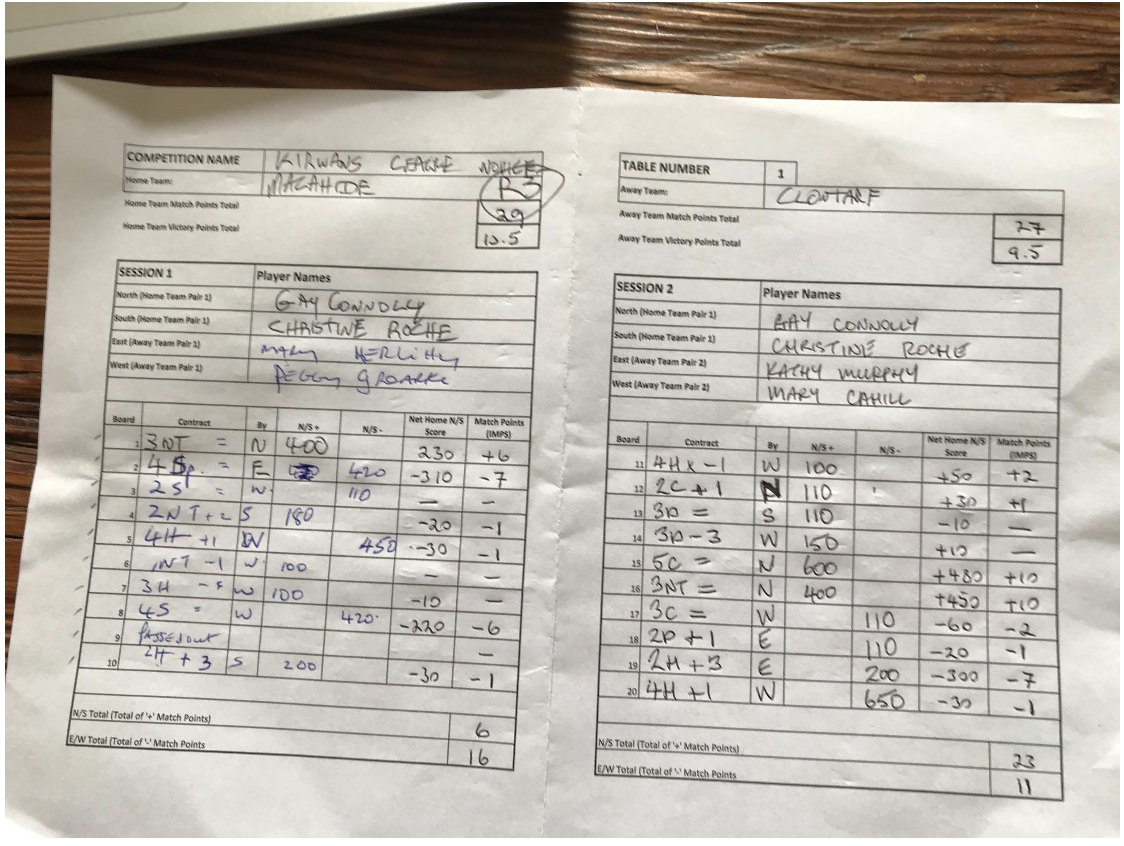 COMPETITION NAME KIRWANS LEAGUE NOVICE
Home Team: MALAHIDE R3
Home Team Match Points Total 29
Home Team Victory Points Total 10.5
SESSION 1 Player Names
North (Home Team Pair 1) GAY CONNOLLY
South (Home Team Pair 1) CHRISTINE ROCHE
East (Away Team Pair 1) MARY HERLIHY
West (Away Team Pair 1) PEGGY GROARKE
Board Contract By N/S+ N/S- Net Home N/S Score Match Points (IMPS)
1 3NT = N 400 230 +6
2 4 Sp. = E 420 -310 -7
3 2S = W. 110 — —
4 2NT+2 S 180 -20 -1
5 4H +1 W 450 -30 -1
6 1NT -1 W 100 — —
7 3H W 100 -10 —
8 4S = W 420. -220 -6
9 PASSED OUT —
10 2H + 3 S 200 -30 -1
N/S Total (Total of '+' Match Points) 6
E/W Total (Total of '-' Match Points 16
TABLE NUMBER 1
Away Team: CLONTARF
Away Team Match Points Total 27
Away Team Victory Points Total 9.5
SESSION 2 Player Names
North (Home Team Pair 1) GAY CONNOLLY
South (Home Team Pair 1) CHRISTINE ROCHE
East (Away Team Pair 2) KATHY MURPHY
West (Away Team Pair 2) MARY CAHILL
Board Contract By N/S+ N/S- Net Home N/S Score Match Points (IMPS)
11 4Hx-1 W 100 +50 +2
12 2C+1 N 110 +30 +1
13 3D = S 110 -10 —
14 3D-3 W 150 +10 —
15 5C = N 600 +480 +10
16 3NT = N 400 +450 +10
17 3C = W 110 -60 -2
18 2D+1 E 110 -20 -1
19 2H+3 E 200 -300 -7
20 4H+1 W 650 -30 -1
N/S Total (Total of '+' Match Points) 23
E/W Total (Total of '-' Match Points 11